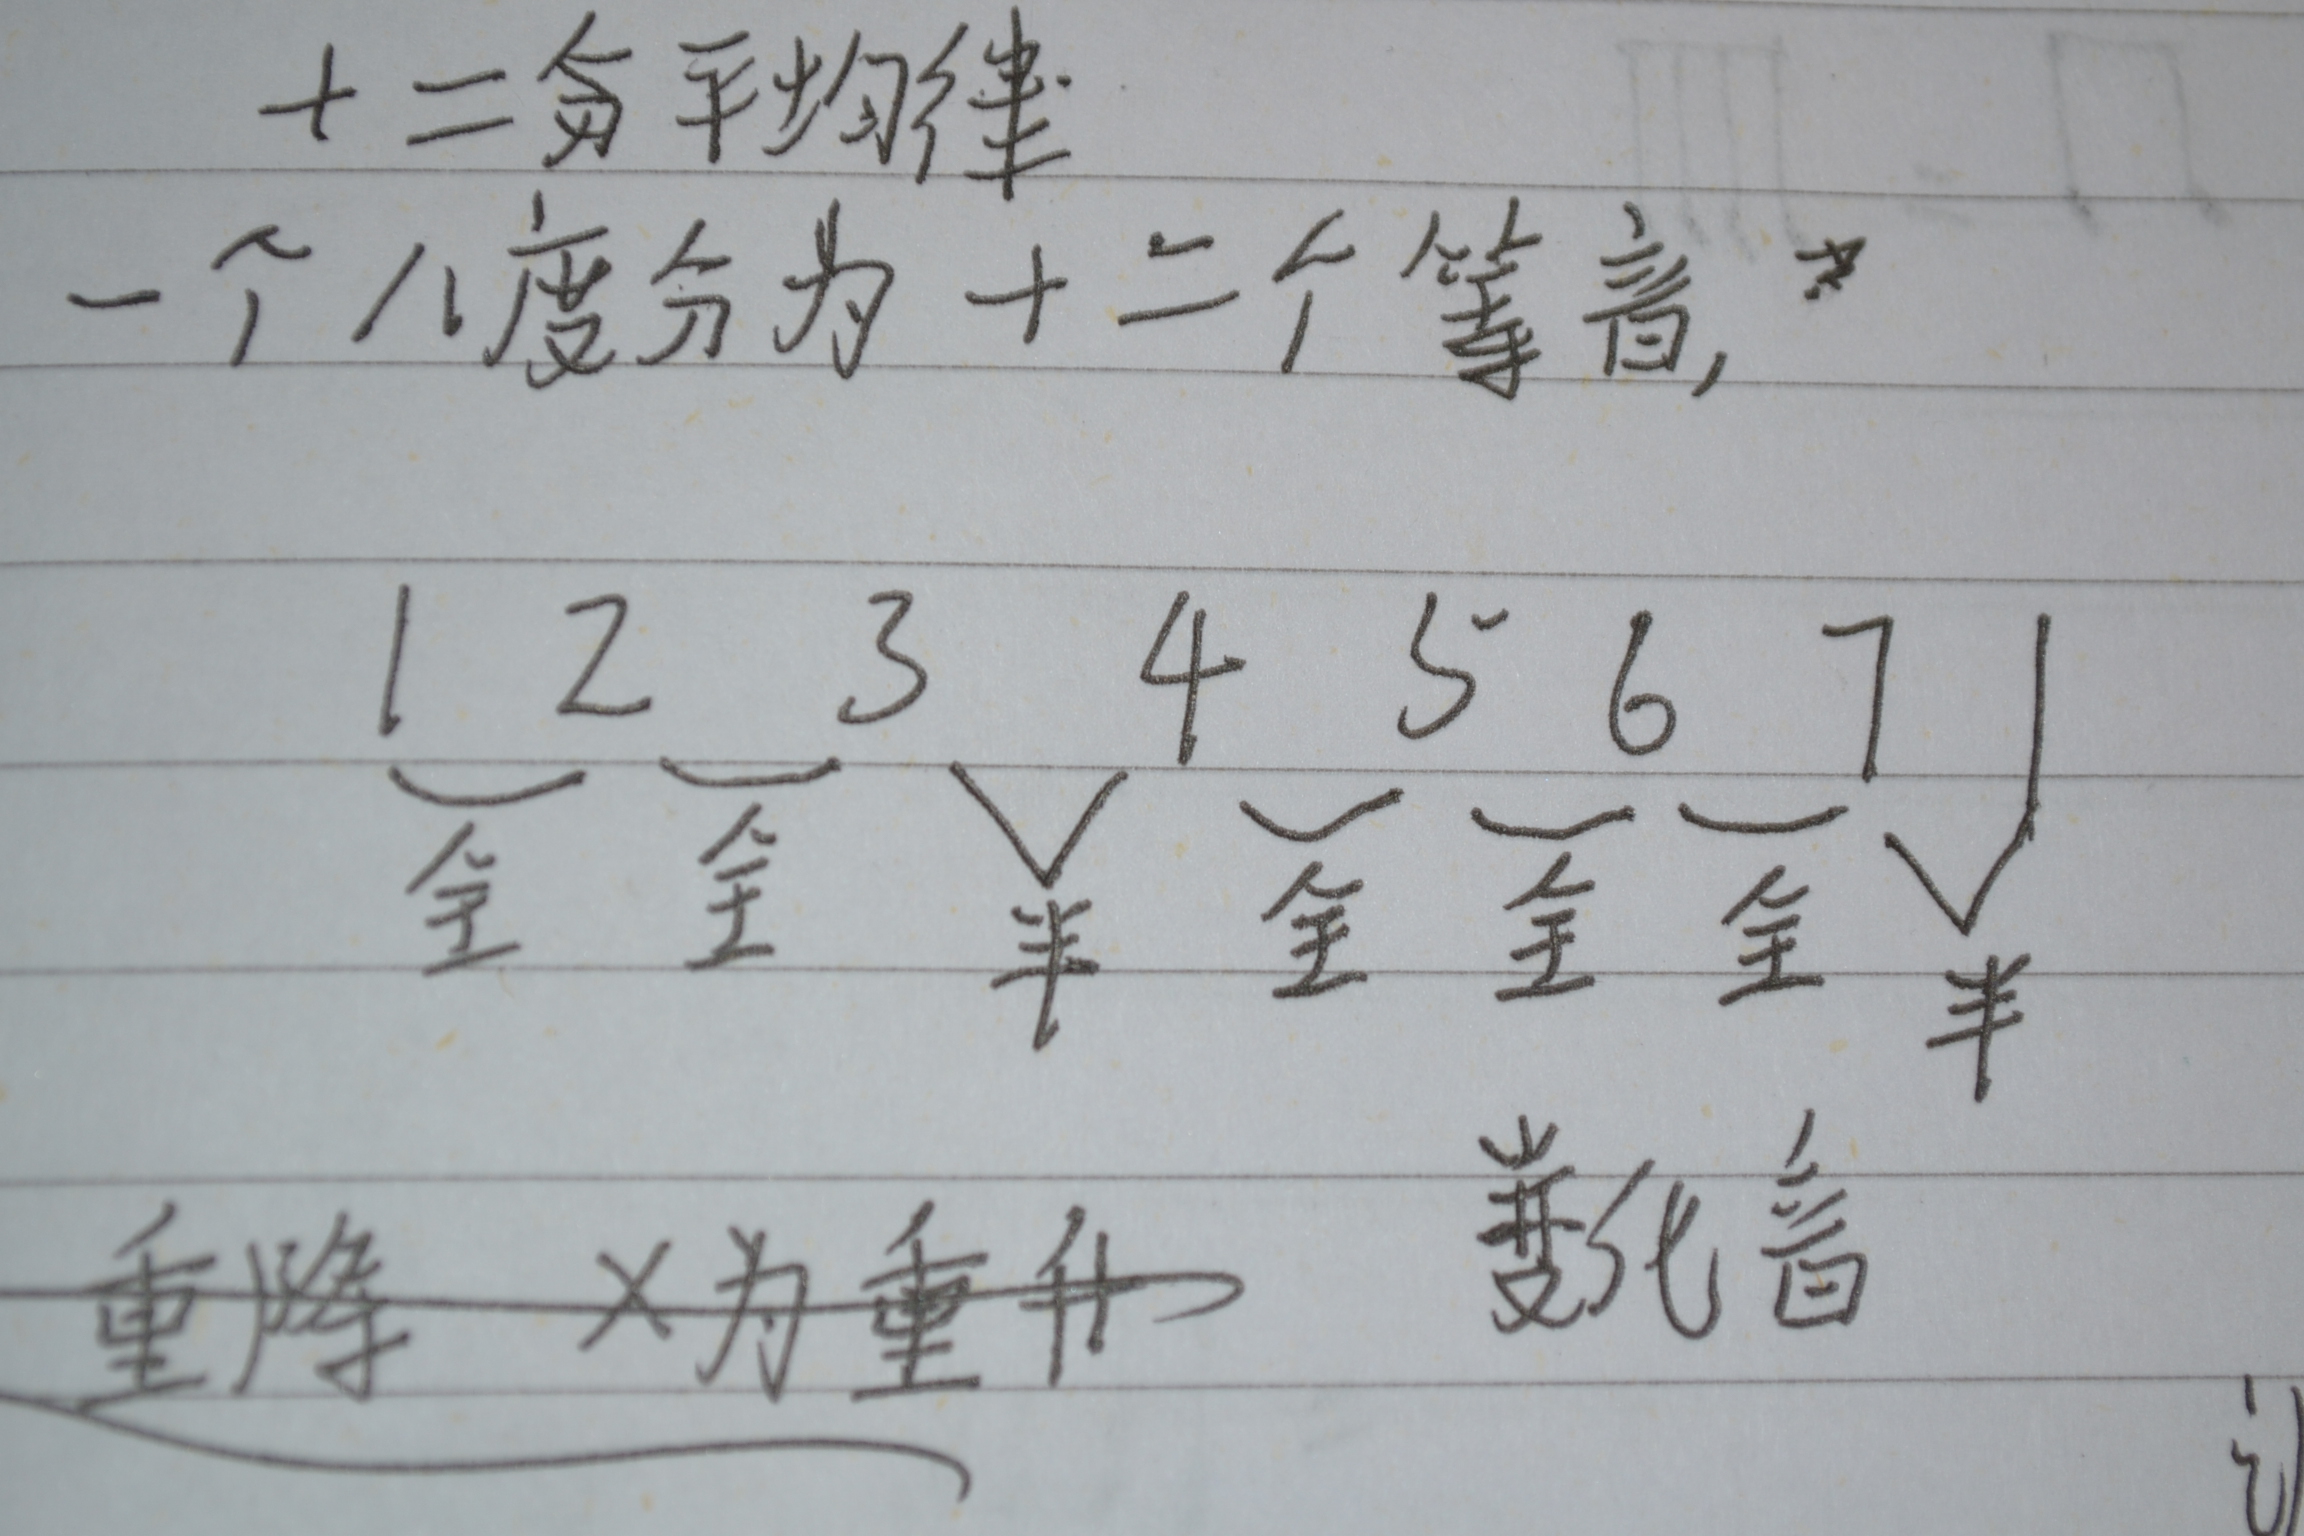 十二分平均律
一个八度分为十二个等音,
1 2 3 4 5 6 7 1
全 全 半 全 全 全 半
重降 X为重升 变化音